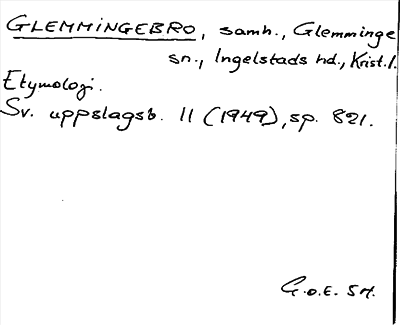 GLEMMINGEBRO, samh., Glemminge
sn., Ingelstads hd., Krist.l.
Etymologi.
Sv. uppslagsb. 11 (1949), sp. 821.
G.o.E. SM.